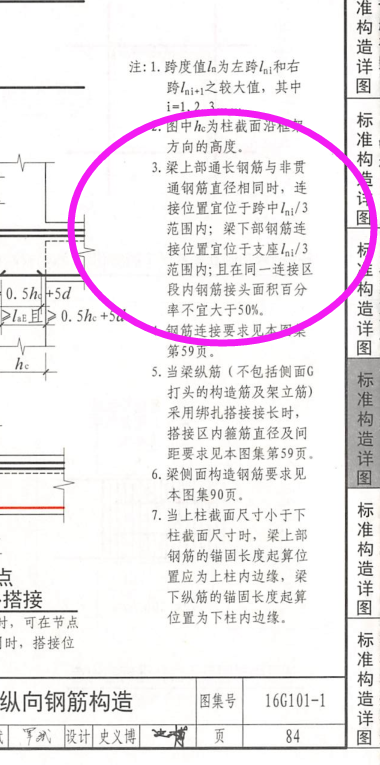 注: 1. 跨度值ln为左跨lni和右
跨lni+1之较大值，其中
i=1,2,3……
2. 图中hc为柱截面沿框架
方向的高度。
3. 梁上部通长钢筋与非贯
通钢筋直径相同时，连
接位置宜位于跨中lni/3
范围内；梁下部钢筋连
接位置宜位于支座lni/3
范围内；且在同一连接区
段内钢筋接头面积百分
率不宜大于50%。
钢筋连接要求见本图集
第59页。
5. 当梁纵筋（不包括侧面G
打头的构造筋及架立筋）
采用绑扎搭接接长时，
搭接区内箍筋直径及间
距要求见本图集第59页。
6. 梁侧面构造钢筋要求见
本图集90页。
7. 当上柱截面尺寸小于下
柱截面尺寸时，梁上部
钢筋的锚固长度起算位
置应为上柱内边缘，梁
下纵筋的锚固长度起算
位置为下柱内边缘。
0.5hc+5d
≥laE且≥0.5hc+5d
hc
点
搭接
时，可在节点
时，搭接位
纵向钢筋构造
图集号
16G101-1
设计
史义博
页
84
准构造详图
标准构造详图
标准构造详图
标准构造详图
标准构造详图
标准构造详图